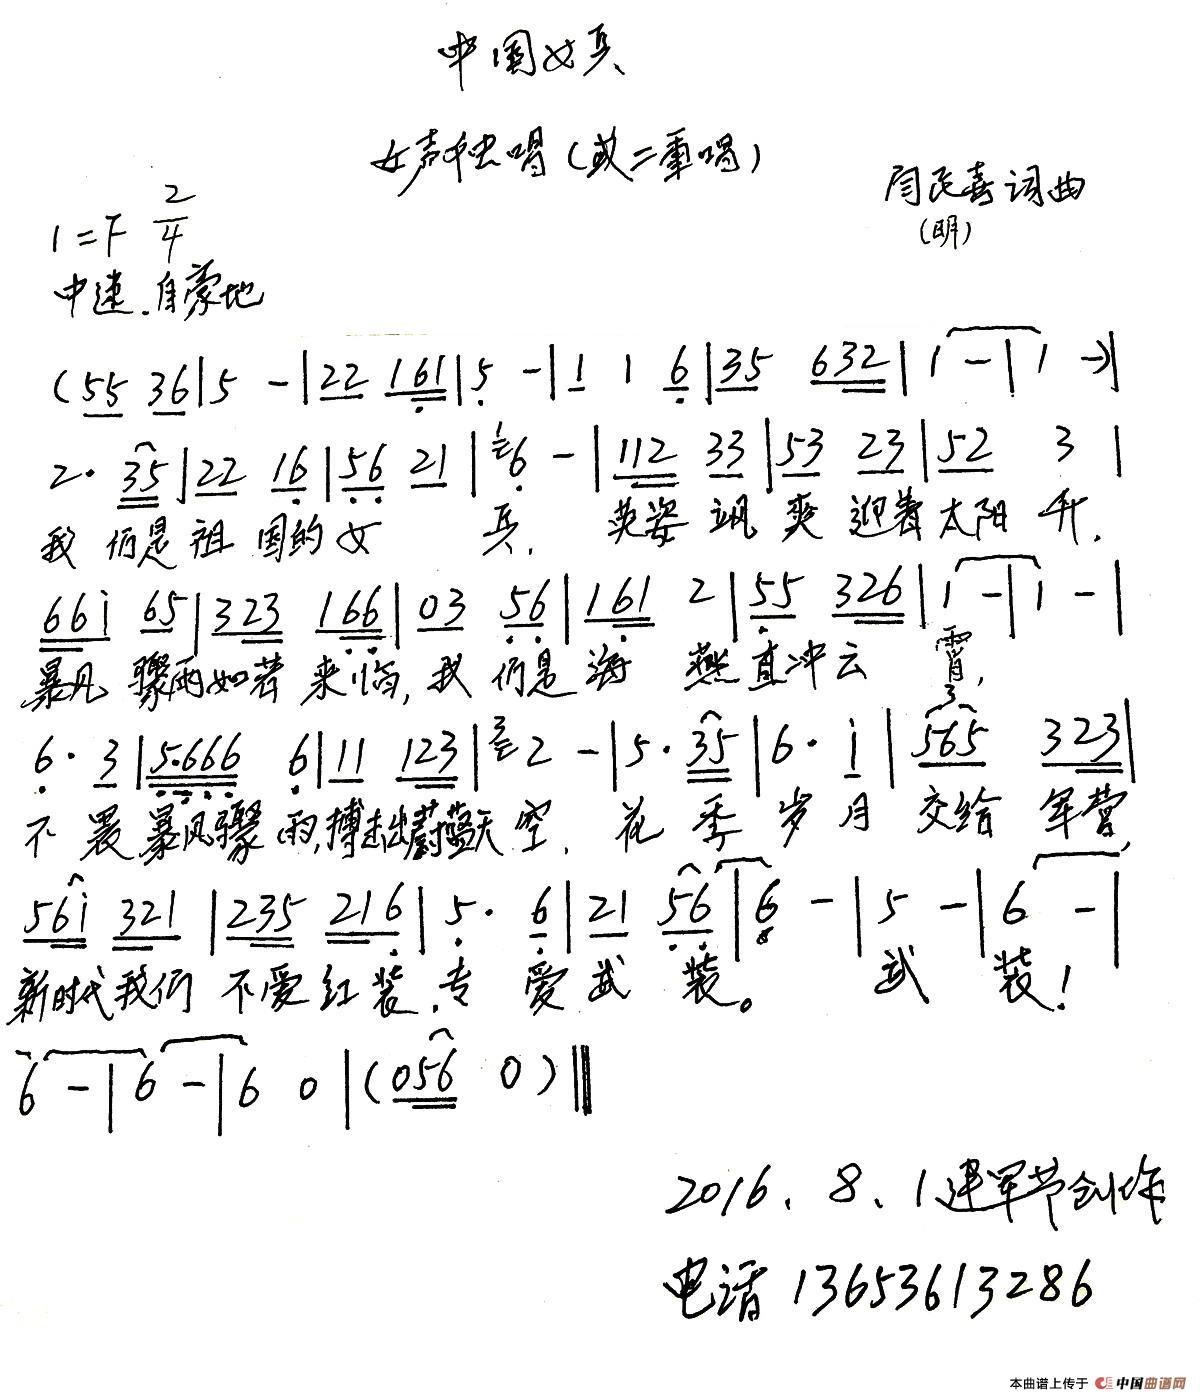 中国女兵
女声独唱(或二重唱)
闫民喜词曲
(明)
1=F 2/4
中速.自豪地
(55 36|5 -|22 161|5 -|1 1 6|35 632|1 -|1 -)|
2· 35|22 16|56 21|6 -|112 33|53 23|52 3|
我们是祖国的女兵,英姿飒爽迎着太阳升,
66i 65|323 166|03 56|161 2|55 326|1 -|1 -|
暴风骤雨如若来临,我们是海燕直冲云霄,
6· 3|5·666 6|11 123|2 -|5· 35|6· i|565 323|
不畏暴风骤雨,搏击出蔚蓝天空,花季岁月交给军营,
56i 321|235 216|5· 6|21 56|6 -|5 -|6 -|
新时代我们不爱红装,专爱武装。武装!
6 -|6 -|6 0|(056 0)‖
2016、8、1建军节创作
电话 13653613286
本曲谱上传于 中国曲谱网